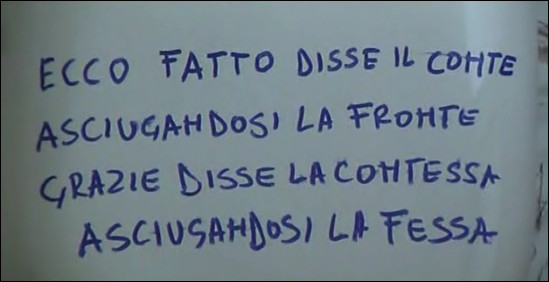 ECCO FATTO DISSE IL CONTE
ASCIUGANDOSI LA FRONTE
GRAZIE DISSE LA CONTESSA
ASCIUGANDOSI LA FESSA